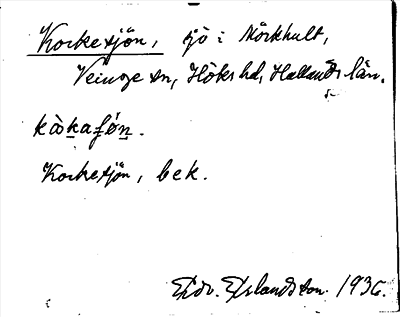 Korkesjön, sjö i Mörkhult,
Veinge sn, Höks hd, Hallands län.
kòrkaʃó̱n.
Korkesjön, bek.
Edv. Erlandsson. 1936.